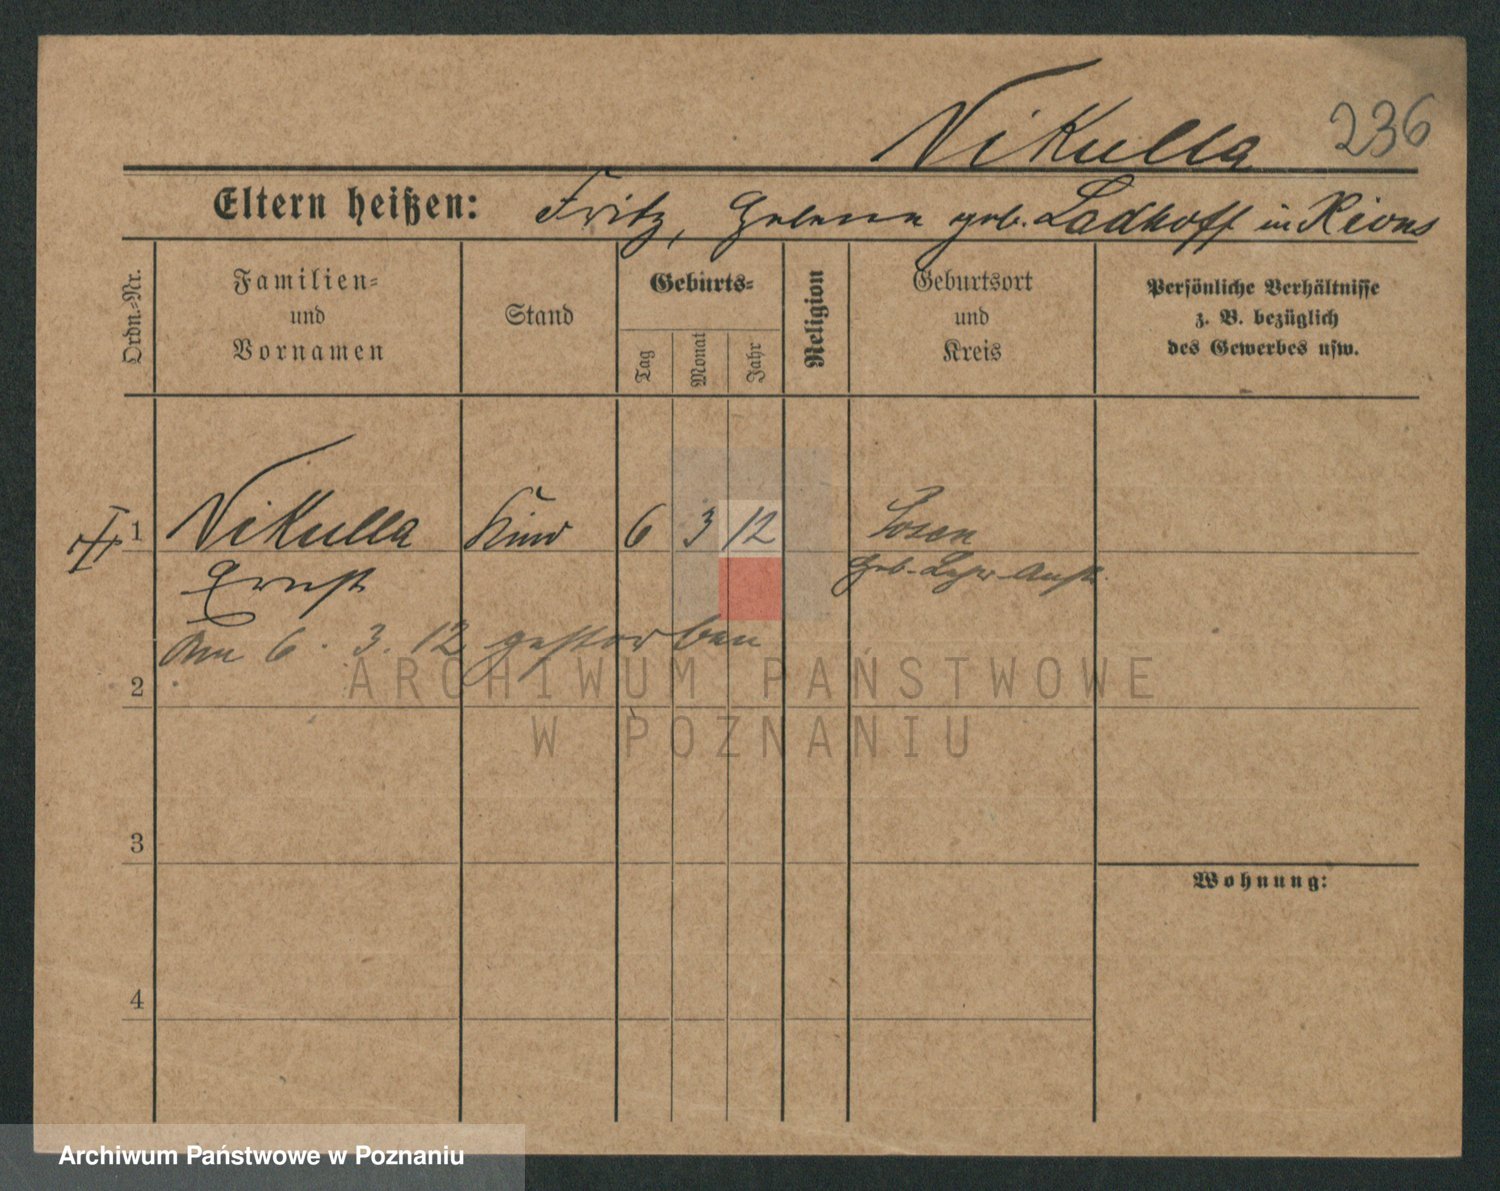 Nikulla 236
Eltern heißen: Fritz, Helene geb. Ladhoff in
Ordn.-Nr.
Familien-
und
Vornamen
Stand
Geburts-
Tag
Monat
Jahr
Religion
Geburtsort
und
Kreis
Persönliche Verhältnisse
z. B. bezüglich
des Gewerbes usw.
1 Nikulla Kind 6 3 12 Posen
Ernst Geb.-Lehr-Anst.
Am 6. 3. 12 gestorben
2
ARCHIWUM PAŃSTWOWE
W POZNANIU
3
Wohnung:
4
Archiwum Państwowe w Poznaniu